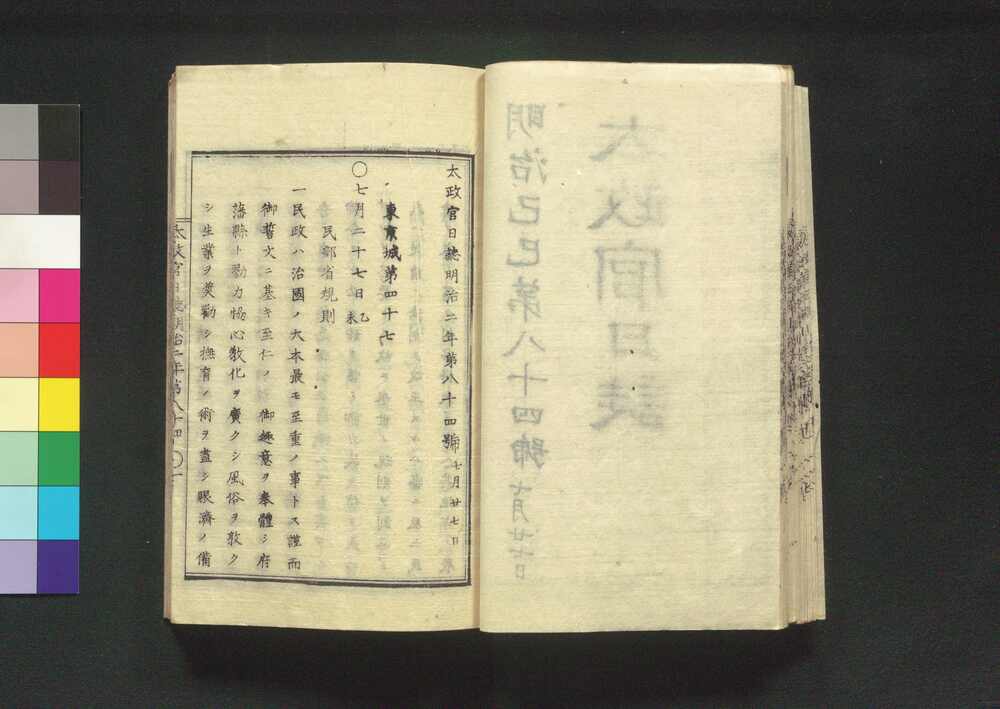 太政官日誌
明治己巳第八十四號 七月廿七日
太政官日誌明治二年第八十四號 七月廿七日
東京城第四十七
〇七月二十七日乙未
民部省規則
一民政ハ治國ノ大本最モ至重ノ事トス謹而
御誓文ニ基キ至仁ノ御趣意ヲ奉體シ府
藩縣ト勠力協心敎化ヲ廣クシ風俗ヲ敦ク
シ生業ヲ奬勸シ撫育ノ術ヲ盡シ賑濟ノ備
太政官日誌明治二年第八十四 〇一